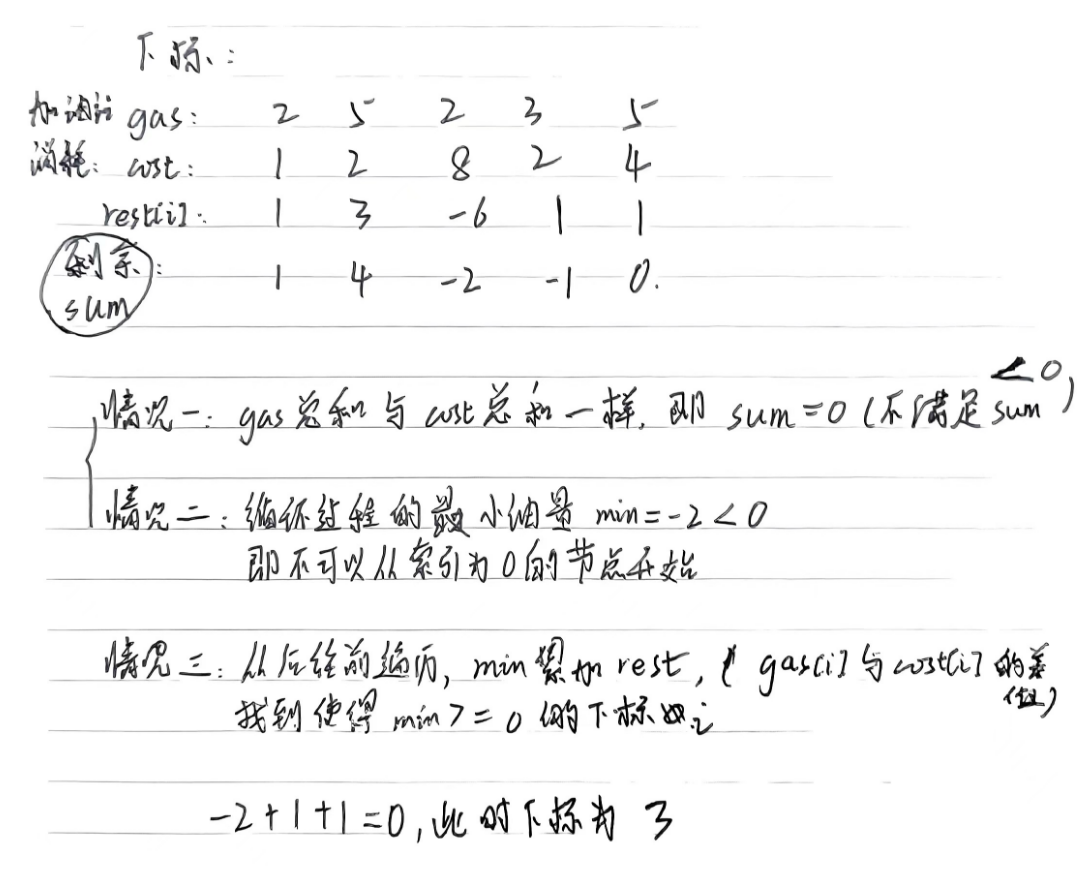 下标：
加油站 gas: 2 5 2 3 5
消耗: cost: 1 2 8 2 4
rest[i]: 1 3 -6 1 1
剩余: 1 4 -2 -1 0.
sum
情况一: gas总和与cost总和一样, 即 sum=0 (不满足sum <0)
情况二: 循环过程的最小油量 min=-2<0
即不可以从索引为0的节点开始
情况三: 从后往前遍历, min累加rest, ( gas[i]与cost[i]的差值)
找到使得 min>=0 的下标 i
-2+1+1=0, 此时下标为 3